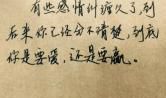 有些感情纠缠久了,到
后来你已经分不清楚,到底
你是要爱,还是要赢。